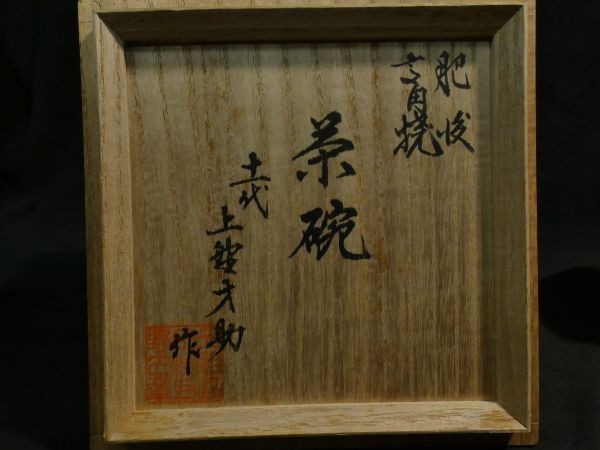 肥後
高田焼
茶碗
十一代
上野才助
作